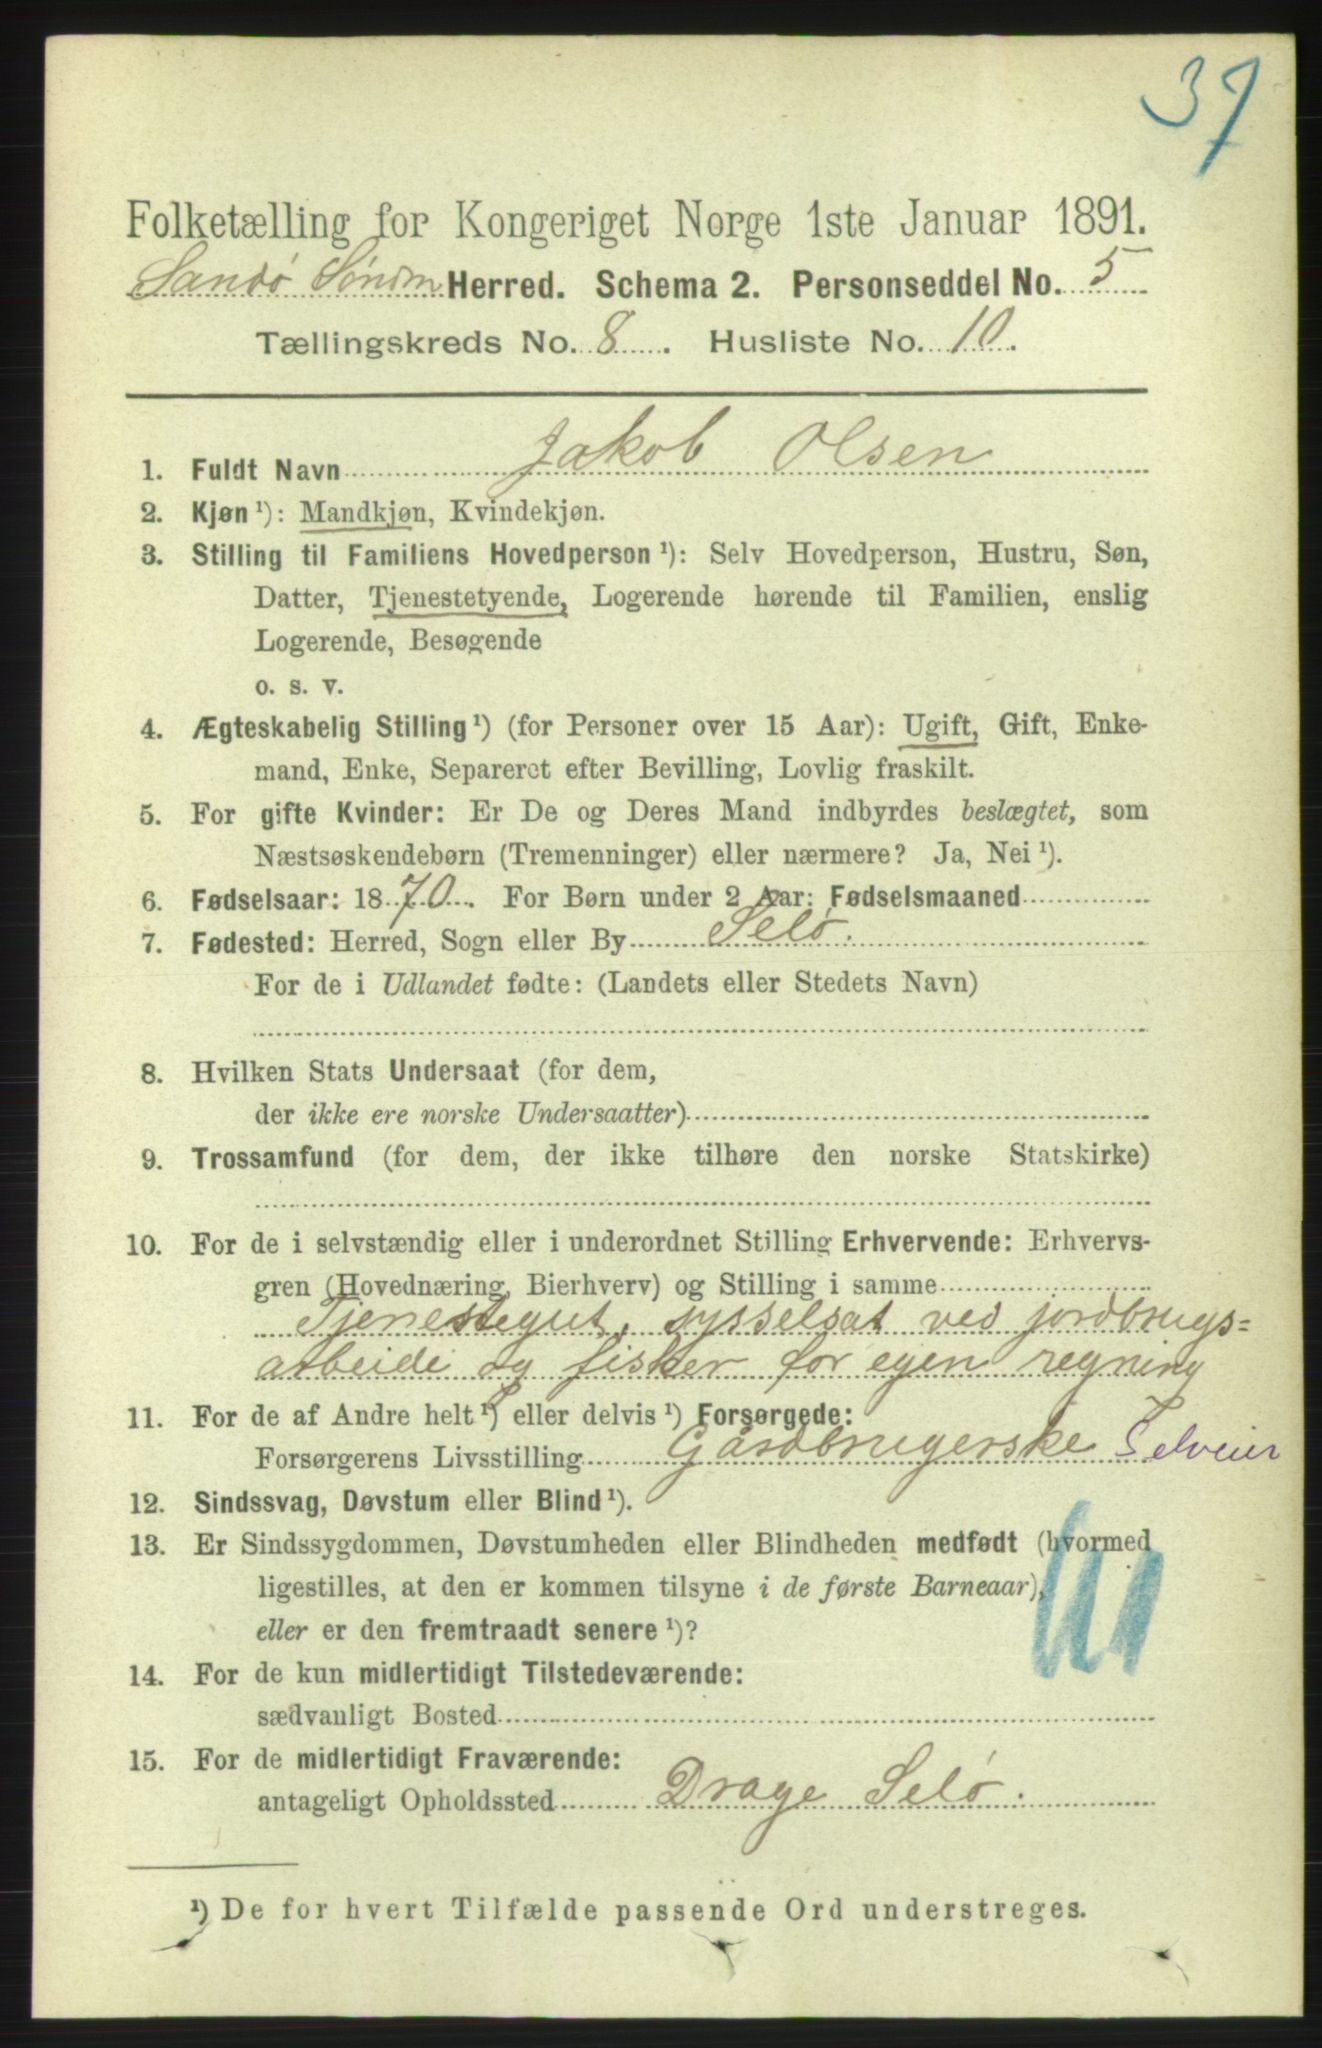 37
Folketælling for Kongeriget Norge 1ste Januar 1891.
Sandø Søndm Herred. Schema 2. Personseddel No. 5
Tællingskreds No. 8. Husliste No. 10.
1. Fuldt Navn Jakob Olsen
2. Kjøn ¹): Mandkjøn, Kvindekjøn.
3. Stilling til Familiens Hovedperson ¹): Selv Hovedperson, Hustru, Søn,
Datter, Tjenestetyende, Logerende hørende til Familien, enslig
Logerende, Besøgende
o. s. v.
4. Ægteskabelig Stilling ¹) (for Personer over 15 Aar): Ugift, Gift, Enke-
mand, Enke, Separeret efter Bevilling, Lovlig fraskilt.
5. For gifte Kvinder: Er De og Deres Mand indbyrdes beslægtet, som
Næstsøskendebørn (Tremenninger) eller nærmere? Ja, Nei ¹).
6. Fødselsaar: 1870. For Børn under 2 Aar: Fødselsmaaned
7. Fødested: Herred, Sogn eller By Selø.
For de i Udlandet fødte: (Landets eller Stedets Navn)
8. Hvilken Stats Undersaat (for dem,
der ikke ere norske Undersaatter)
9. Trossamfund (for dem, der ikke tilhøre den norske Statskirke)
10. For de i selvstændig eller i underordnet Stilling Erhvervende: Erhvervs-
gren (Hovednæring, Bierhverv) og Stilling i samme
Tjenestegut, sysselsat ved jordbrugs=
arbeide og fisker for egen regning
11. For de af Andre helt ¹) eller delvis ¹) Forsørgede:
Forsørgerens Livsstilling Gårdbrugerske Selveier
12. Sindssvag, Døvstum eller Blind ¹).
13. Er Sindssygdommen, Døvstumheden eller Blindheden medfødt (hvormed
ligestilles, at den er kommen tilsyne i de første Barneaar),
eller er den fremtraadt senere ¹)?
14. For de kun midlertidigt Tilstedeværende:
sædvanligt Bosted
15. For de midlertidigt Fraværende:
antageligt Opholdssted Drage Selø.
¹) De for hvert Tilfælde passende Ord understreges.